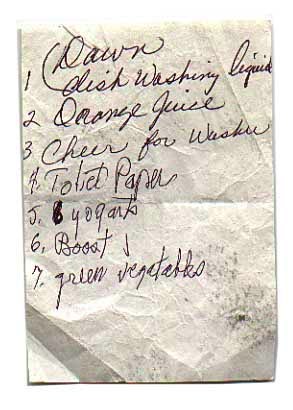 (Dawn
1 dish Washing liquid
2 Orange Juice
3 Cheer for Washer
4. Toilet Paper
5. 6 yogarts
6. Boost
7. green vegatables